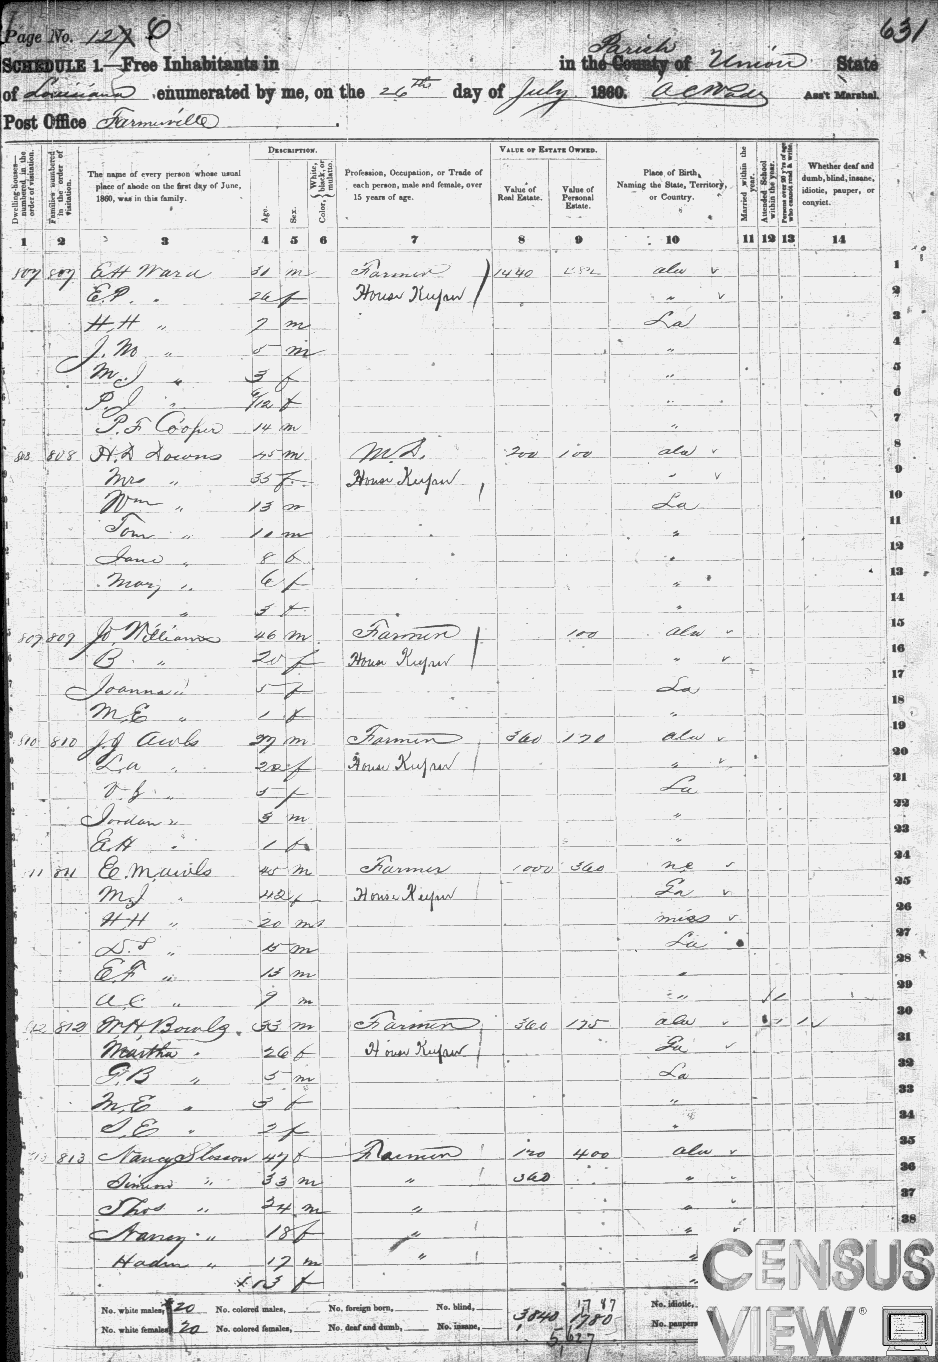 Page No. 127 6 631
SCHEDULE 1.—Free Inhabitants in in the County of Parish Union State
of Louisiana enumerated by me, on the 26th day of July 1860. Ass't Marshal.
Post Office Farmerville
DESCRIPTION. VALUE OF ESTATE OWNED.
Dwelling-houses—numbered in the order of visitation.
Families numbered in the order of visitation.
The name of every person whose usual place of abode on the first day of June, 1860, was in this family.
Age.
Sex.
Color, White, black, or mulatto.
Profession, Occupation, or Trade of each person, male and female, over 15 years of age.
Value of Real Estate.
Value of Personal Estate.
Place of Birth, Naming the State, Territory, or Country.
Married within the year.
Attended School within the year.
Persons over 20 y'rs of age who cannot read & write.
Whether deaf and dumb, blind, insane, idiotic, pauper, or convict.
1 2 3 4 5 6 7 8 9 10 11 12 13 14
807 807 E H Ward 31 m Farmer 1440 ala 1
E.P. " 26 f House Keeper " 2
H.H " 7 m La 3
J. M " 5 m " 4
M. J " 3 f " 5
P. J " /12 f " 6
P. F Cooper 14 m " 7
808 808 H. D Downs 45 m M.D. 200 100 ala 8
Mrs " 35 f House Keeper " 9
Wm " 13 m La 10
Tom " 10 m " 11
Jane " 8 f " 12
Mary " 6 f " 13
" 3 f " 14
809 809 Jo Williams 46 m Farmer 100 ala 15
B " 20 f House Keeper " 16
Joanna " 5 f La 17
M.E " 1 f " 18
810 810 J. J 27 m Farmer 360 170 ala 19
L.a " 20 f House Keeper " 20
V. J " 5 f La 21
Jordan " 3 m " 22
E.H " 1 f " 23
11 811 E. M 45 m Farmer 1000 360 n.c 24
M. J " 42 f House Keeper Ga 25
H H " 20 m miss 26
D. S " 15 m La 27
E F " 13 m " 28
A. C " 9 m " 29
812 812 W. H. Bowls 33 m Farmer 360 175 ala 30
Martha " 26 f House Keeper Ga 31
G. B " 5 m La 32
M. E " 3 f " 33
S. E " 2 f " 34
813 Nancy Slosson 47 f Farmer 120 400 ala 35
Simeon " 33 m " 360 " 36
Thos " 24 m " " 37
Nancy " 18 f " " 38
" 17 m " "
13 f "
No. white males, 20 No. colored males, No. foreign born, No. blind, 3840 1787 No. idiotic,
No. white females, 20 No. colored females, No. deaf and dumb, No. insane, 1780 No. paupers
5,627
CENSUS
VIEW®